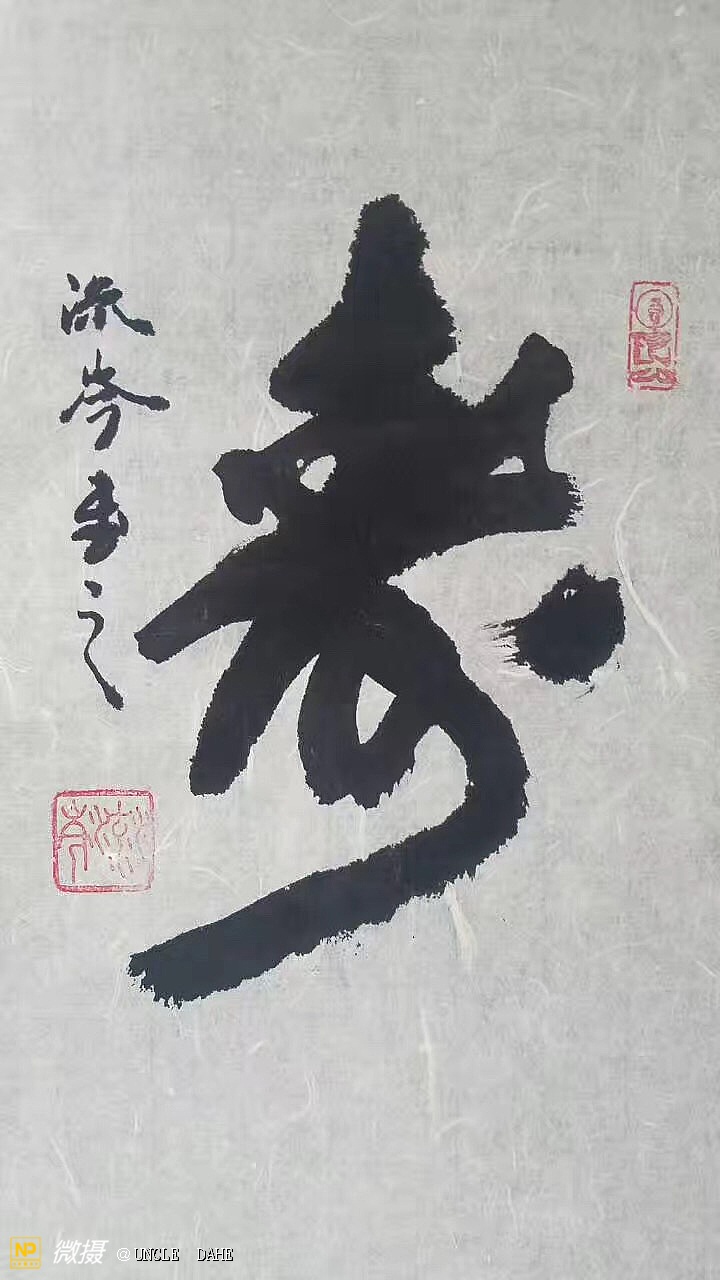 寿
流岑书之
NP 微摄 @UNCLE DAHE